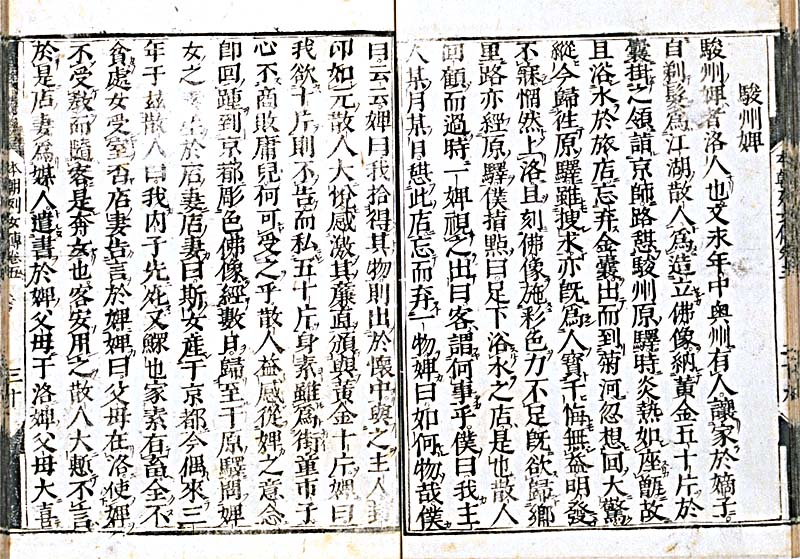 駿州婢
駿州婢者洛人也文永年中奧州有人讓家於嫡子
自剃髮爲江湖散人爲造立佛像納黃金五十片於
囊掛之領詣京師路憇駿州原驛時炎熱如座甑故
且浴水於旅店忘弃金囊出而到菊河忽想回大驚
縱今歸徃原驛雖搜求亦旣爲人寶千悔無益明發
不寐惘然上洛且刻佛像施彩色力不足旣欲歸鄉
里路亦經原驛僕指點曰足下浴水之店是也散人
回顧而過時一婢視之出曰客謂何事乎僕曰我主
人某月某日憇此店忘而弃一物婢曰如何物哉僕
曰云云婢曰我拾得其物則出於懷中與之主人
印如元散人大悅感激其廉直頒與黃金十片婢曰
我欲十片則不告而私五十片身素雖爲街童市子
心不商敗庸兒何可受之乎散人益感從婢之意念
卽回踵到京都彫色佛像經數日歸至于原驛問婢
女之生於店妻店妻曰斯女產于京都今偶來三
年于茲散人曰我內子先死又鰥也家素有畜全不
貧處女受室否店妻告言於婢婢曰父母在洛使婢
不受敎而隨客是奔女也客安用之散人大慙不言
於是店妻爲媒人遺書於婢父母于洛婢父母大喜
本朝列女傳卷五
三十